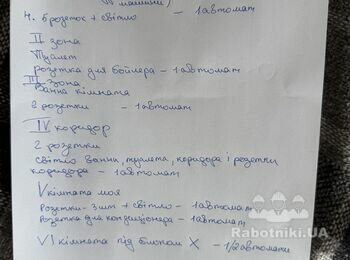 машини)
4. 6розеток + світло - 1автомат
II зона
Туалет
розетка для бойлера - 1автомат
III зона
Ванна кімната
2 розетки - 1автомат
IV коридор
2 розетки
світло ванни, туалета, коридора і розетки
коридора - 1автомат
V кімната моя
Розетки - 3шт + світло - 1автомат
Розетка для кондиціонера - 1автомат
VI кімната під блоком X - 1/2автомати
Rabotniki.UA